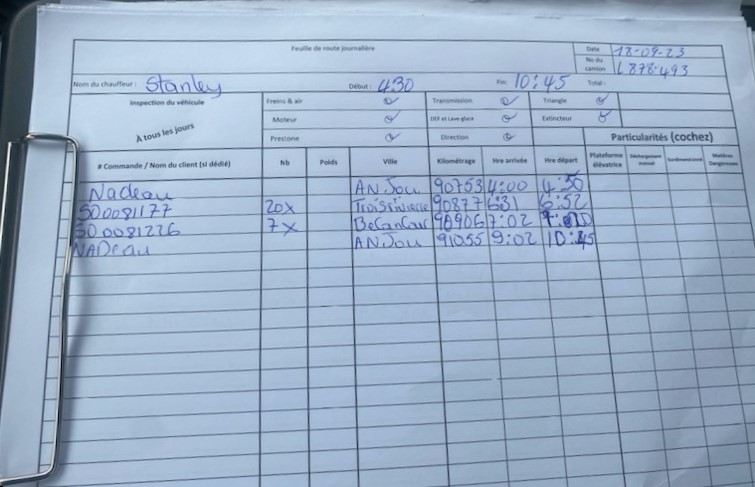 Feuille de route journalière
Date 18-09-23
No du camion L878-493
Nom du chauffeur : Stanley Début : 4:30 Fin: 10:45 Total :
Inspection du véhicule
À tous les jours
Freins & air Transmission Triangle
Moteur DEF et Lave glace Extincteur
Prestone Direction Particularités (cochez)
# Commande / Nom du client (si dédié) Nb Poids Ville Kilométrage Hre arrivée Hre départ Plateforme élévatrice Déchargement manuel Surdimensionné Matières Dangereuses
Nadeau ANJou 90753 4:00 4:30
500081177 20x 90877 6:31 6:52
500081226 7x Becancour 90906 7:02
NADeau ANJou 91055 9:02 10:45